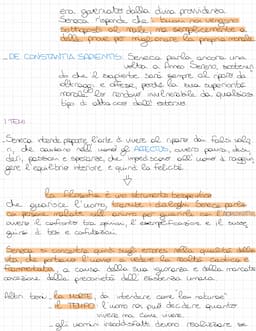 era governato dalla divina provvidenza.
Seneca risponde che i buoni non vengono
sottoposti al male, ma semplicemente a
delle prove per migliorare la propria morale.
_DE CONSTANTIA SAPIENTIS: Seneca parla ancora una
volta a Anneo Sereno, sostenen
do che il sapiente sarà sempre al riparo da
oltraggi e offese, perché la sua superiorità
morale lo rendono invulnerabile da qualsiasi
tipo di attacco dall'esterno.
I TEMI
_Seneca intende proporre l'arte di vivere al riparo dai falsi valo
ri, che causano nell'uomo gli AFFECTUS, ovvero paura, desi
deri, passioni e speranze, che impediscono all'uomo di raggiun
gere l'equilibrio interiore e quindi la felicità.
La filosofia è uno strumento terapeutico
che guarisce l'uomo, tramite i dialoghi Seneca parla
con persone malate nell'animo per guarirle
vivere il confronto tra opinioni, l'esemplificazione e il susse
guirsi di tesi e confutazioni.
Seneca si concentra quindi sugli errori nella qualità della
vita, che portano l'uomo a vedere la realtà caotica e
frammentata, a causa della sua ignoranza e della mancata
concezione della precarietà dell'esistenza umana.
Altri temi: _ la MORTE da intendere come "law naturae"
_ il TEMPO l'uomo non può decidere quanto
vivere ma come vivere.
_ gli uomini insoddisfatti devono realizzare se